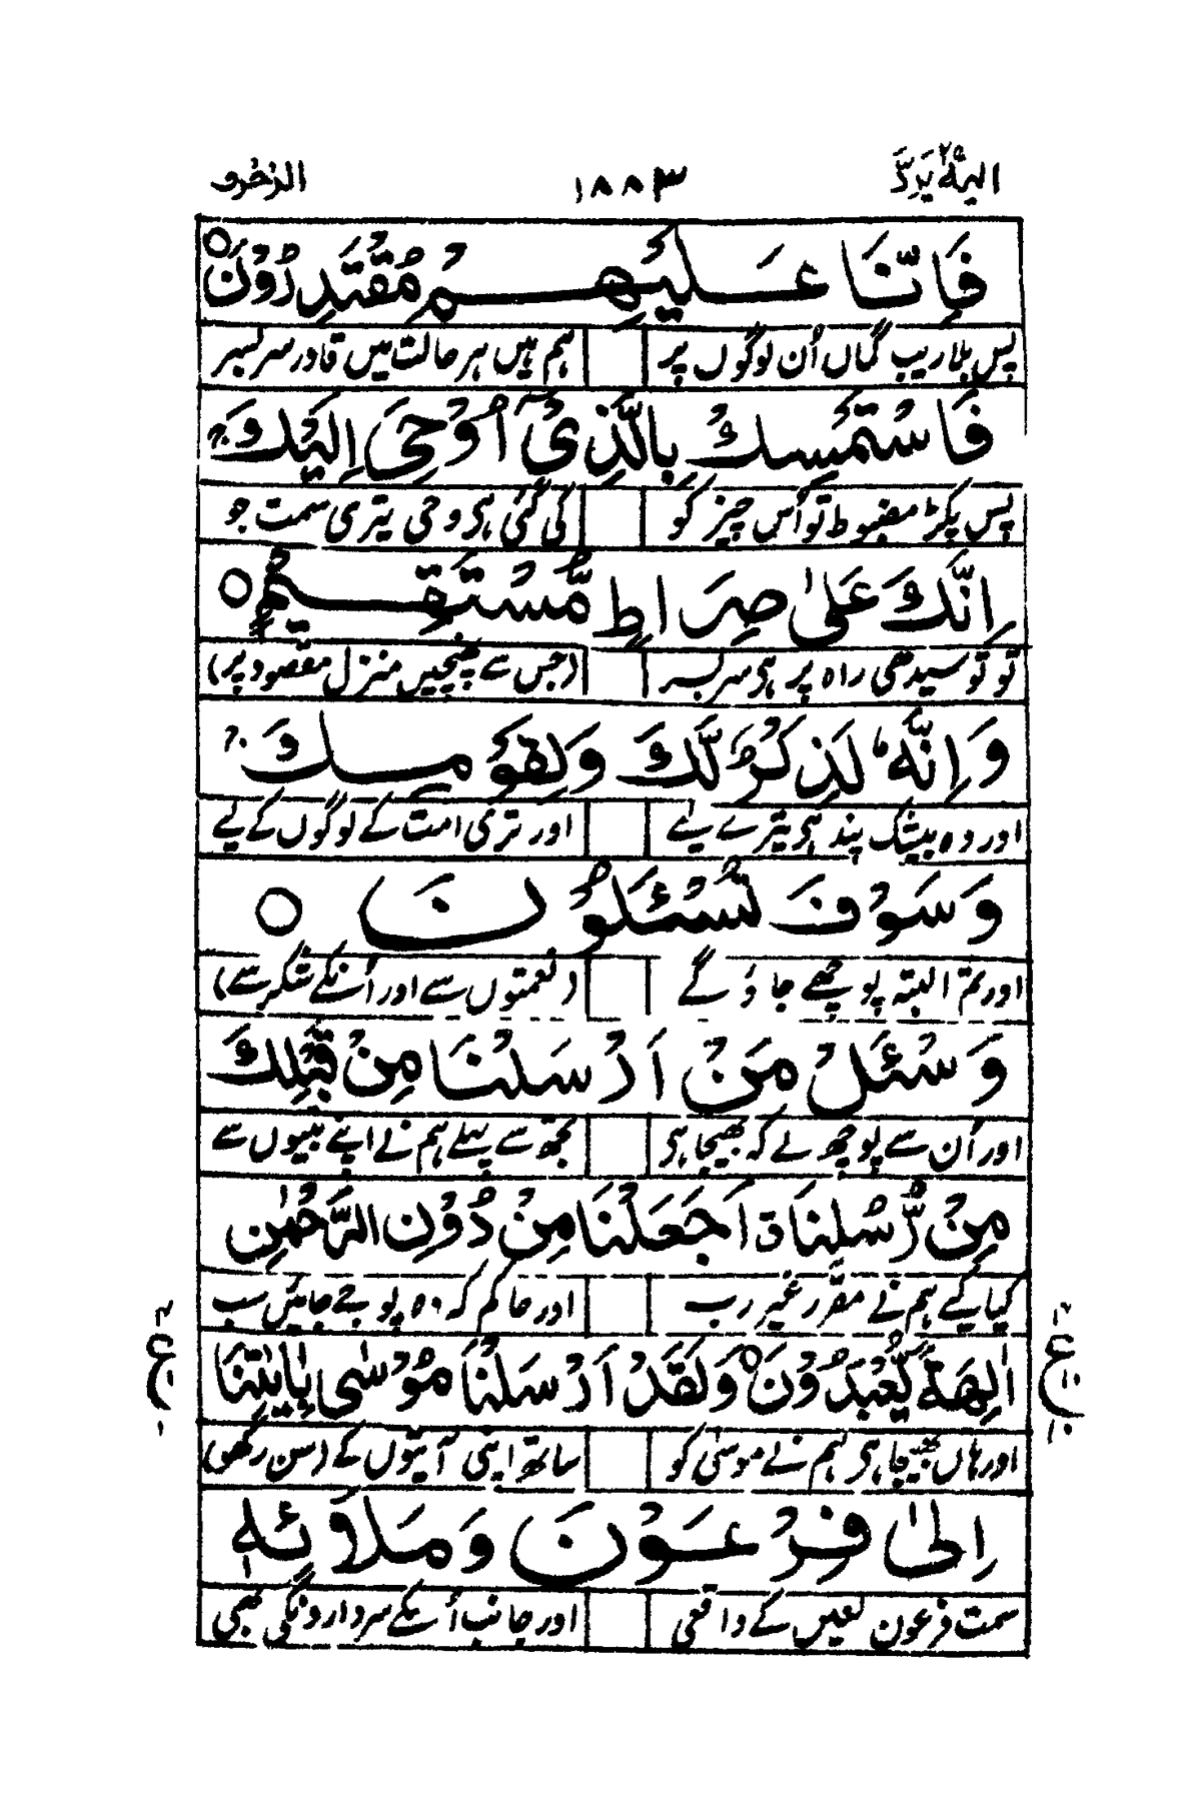 الیہ یردّ ۲۵ ۱۸۸۳ الزخرف
فَاِنَّا عَلَيْهِمْ مُّقْتَدِرُوْنَ ○
پس بلا ریب گماں اُن لوگوں پر ہم ہیں ہر حالت میں قادر سر بسر
فَاسْتَمْسِكْ بِالَّذِیْۤ اُوْحِیَ اِلَیْكَ ۚ
پس پکڑ مضبوط تو اُس چیز کو کی گئی ہی وحی تیری سمت جو
اِنَّكَ عَلٰی صِرَاطٍ مُّسْتَقِیْمٍ ○
تو تو سیدھی راہ پر ہی سر بسر (جس سے پہنچیں منزل مقصود پر)
وَاِنَّهٗ لَذِكْرٌ لَّكَ وَلِقَوْمِكَ ۚ
اور وہ بیشک پند ہی تیرے لیے اور تری امت کے لوگوں کے لیے
وَسَوْفَ تُسْئَلُوْنَ ○
اور تم البتہ پوچھے جاؤ گے (نعمتوں سے اور اُنکے شکر سے)
وَسْئَلْ مَنْ اَرْسَلْنَا مِنْ قَبْلِكَ
اور اُن سے پوچھ لے کہ بھیجا ہی تجھ سے پہلے ہم نے اپنے نبیوں سے
مِنْ رُّسُلِنَاۤ اَجَعَلْنَا مِنْ دُوْنِ الرَّحْمٰنِ
کیا کیے ہم نے مقرّر غیر رب اور حاکم کہ وہ پوجے جائیں سب
اٰلِهَةً یُّعْبَدُوْنَ ○ وَلَقَدْ اَرْسَلْنَا مُوْسٰی بِاٰیٰتِنَاۤ
اور ہاں بھیجا ہی ہم نے موسیٰ کو ساتھ اپنی آیتوں کے (سن رکھو)
اِلٰی فِرْعَوْنَ وَمَلَا۟ئِهٖ
سمت فرعون لعیں کے واقعی اور جانب اُسکے سرداروں کی بھی
ع
ع